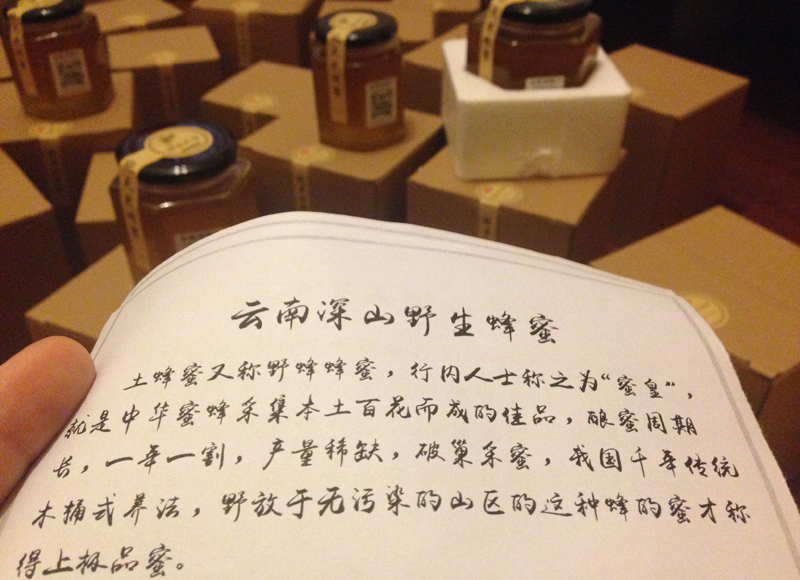 云南深山野生蜂蜜
土蜂蜜又称野蜂蜂蜜，行内人士称之为“蜜皇”，
就是中华蜜蜂采集本土百花而成的佳品，酿蜜周期
长，一年一割，产量稀缺，破巢采蜜，我国千年传统
木桶式养法，野放于无污染的山区的这种蜂的蜜才称
得上极品蜜。